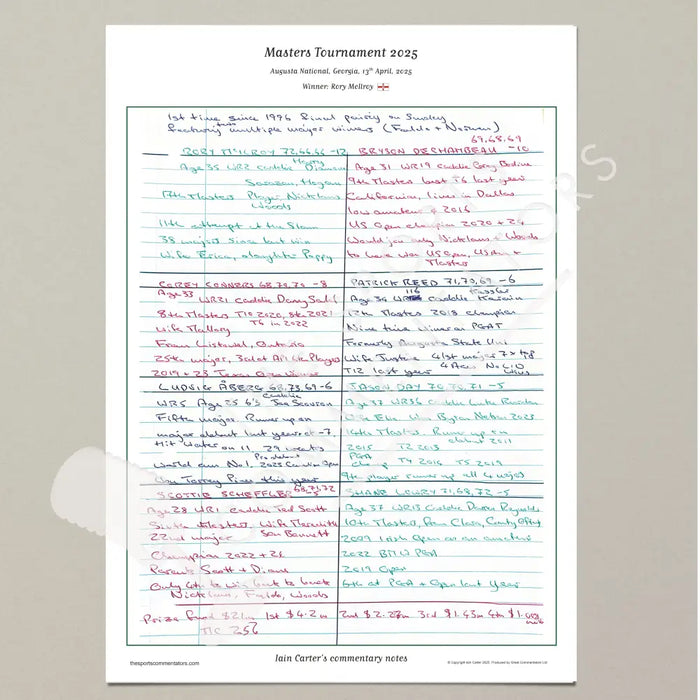 Masters Tournament 2025
Augusta National, Georgia, 13th April, 2025
Winner: Rory McIlroy
1st time since 1996 final pairing on Sunday
featuring multiple major winners (Faldo + Norman)
69,68,69
RORY McILROY 72,66,66 -12
BRYSON DECHAMBEAU -10
Age 35 WR2 caddie Harry Diamond
Sarazen, Hogan
17th Masters Player Nicklaus
Woods
11th attempt at the Slam
38 majors since last win
Wife Erica, daughter Poppy
Age 31 WR19 caddie Greg Bodine
9th Masters best T6 last year
Californian, lives in Dallas
low amateur 2016
US Open champion 2020 + 24
Would join only Nicklaus + Woods
to have won US Open, US Am +
Masters
COREY CONNERS 68,70,70 -8
Age 33 WR21 caddie Danny Sahl
8th Masters T10 2020, 8th 2021
Wife Mallory T6 in 2022
From Listowel, Ontario
25th major, 3rd at API 6th Players
2019 + 23 Texas Open winner
PATRICK REED 71,70,69 -6
116 Kessler
Age 34 WR caddie Karain
12th Masters 2018 champion
Nine time winner on PGAT
Formerly Augusta State Uni
Wife Justine 41st major 7 x
T12 last year
LUDVIG ÅBERG 68,73,69 -6
WR5 Age 25 6'3 caddie Joe Skovron
Fifth major. Runner up on
major debut last year at -7
Hit water on 11
World am No1.
Won Torrey Pines this year
JASON DAY 70,70,71 -5
Age 37 WR36 caddie Luke Reardon
Wife Ellie Won Byron Nelson 2023
14th Masters. Runner up on
debut 2011
2015 T2 2013
PGA
champ T4 2016 T5 2019
SCOTTIE SCHEFFLER 68,71,72 -5
Age 28 WR1 caddie Ted Scott
Sixth Masters, Wife Meredith
22nd major Son Bennett
Champion 2022 + 24
Parents Scott + Diane
Only 4th to win back to back
Nicklaus, Faldo, Woods
SHANE LOWRY 71,68,72 -5
Age 37 WR13 caddie Darren Reynolds
10th Masters, from Clara, County Offaly
2009 Irish Open as an amateur
2022 BMW PGA
2019 Open
6th at PGA + Open last year
Prize fund $21m 1st $4.2m 2nd $2.27m 3rd $1.43m 4th
TIC 256
thesportscommentators.com
Iain Carter's commentary notes